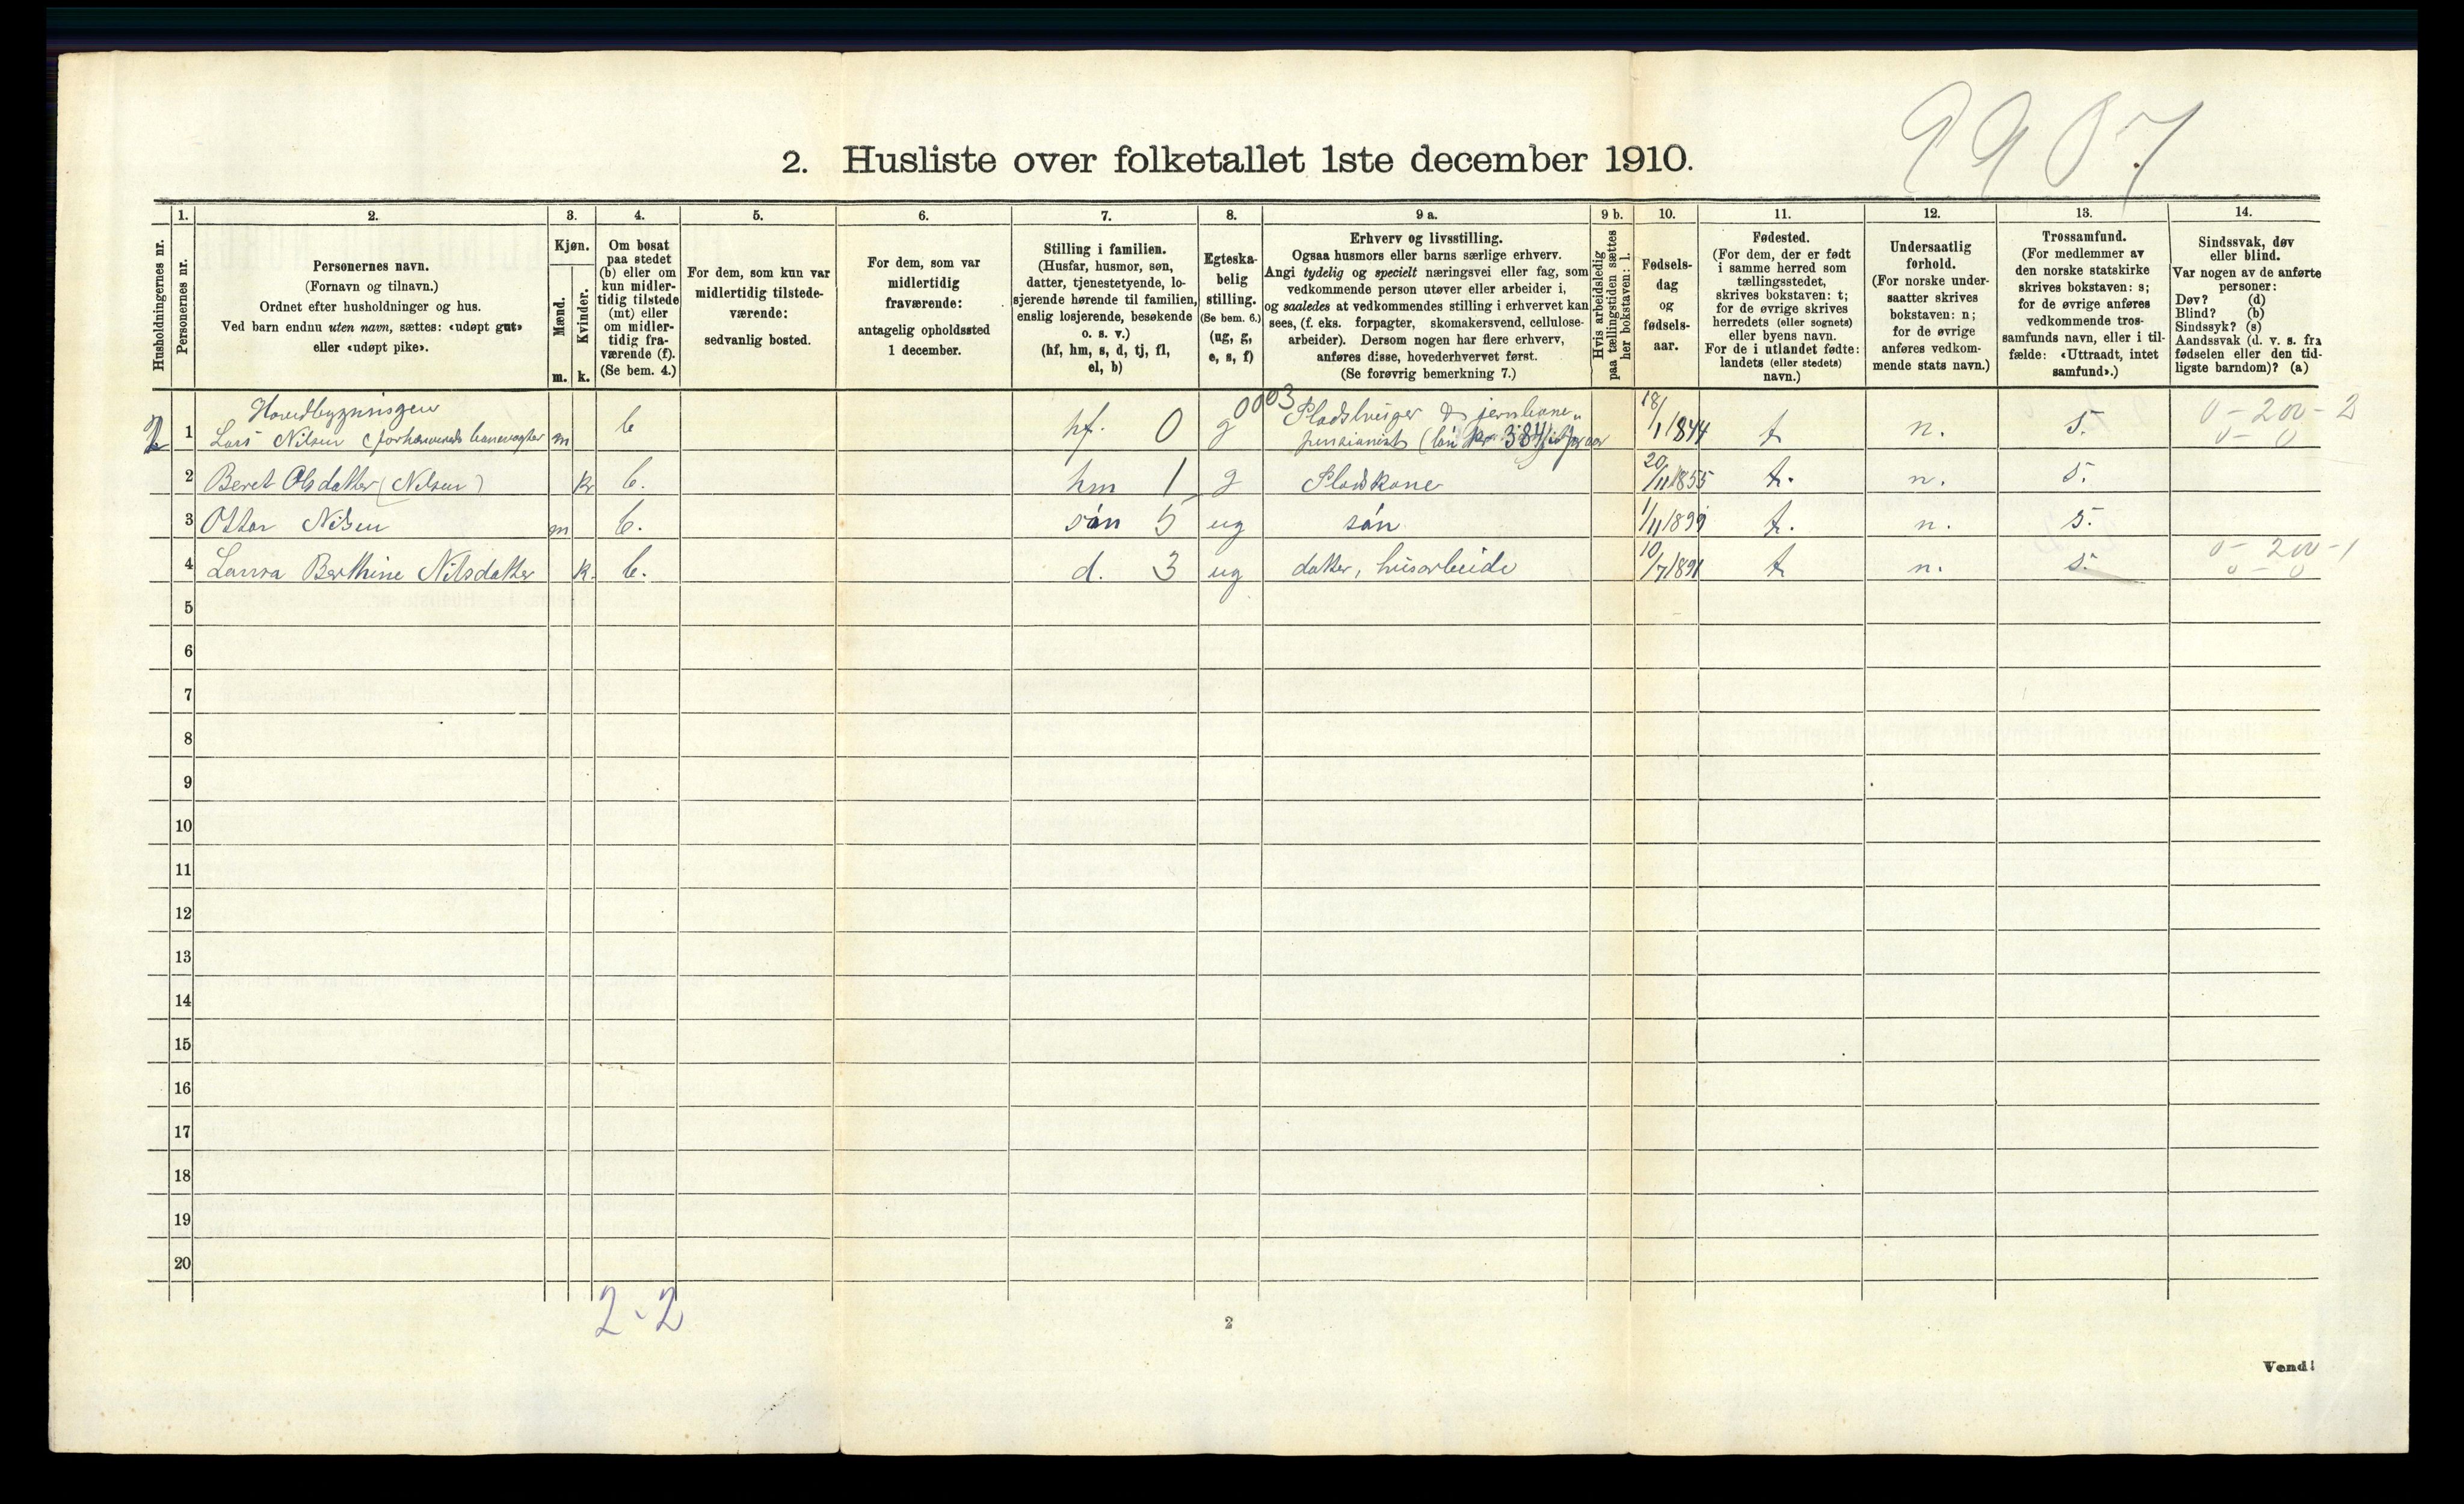 9907
2. Husliste over folketallet 1ste december 1910.
Husholdningernes nr.
1.
Personernes nr.
2.
Personernes navn.
(Fornavn og tilnavn.)
Ordnet efter husholdninger og hus.
Ved barn endnu uten navn, sættes: «udøpt gut»
eller «udøpt pike».
3.
Kjøn.
Mænd.
Kvinder.
m. k.
4.
Om bosat
paa stedet
(b) eller om
kun midler-
tidig tilstede
(mt) eller
om midler-
tidig fra-
værende (f).
(Se bem. 4.)
5.
For dem, som kun var
midlertidig tilstede-
værende:
sedvanlig bosted.
6.
For dem, som var
midlertidig
fraværende:
antagelig opholdssted
1 december.
7.
Stilling i familien.
(Husfar, husmor, søn,
datter, tjenestetyende, lo-
sjerende hørende til familien,
enslig losjerende, besøkende
o. s. v.)
(hf, hm, s, d, tj, fl,
el, b)
8.
Egteska-
belig
stilling.
(Se bem. 6.)
(ug, g,
e, s, f)
9 a.
Erhverv og livsstilling.
Ogsaa husmors eller barns særlige erhverv.
Angi tydelig og specielt næringsvei eller fag, som
vedkommende person utøver eller arbeider i,
og saaledes at vedkommendes stilling i erhvervet kan
sees, (f. eks. forpagter, skomakersvend, cellulose-
arbeider). Dersom nogen har flere erhverv,
anføres disse, hovederhvervet først.
(Se forøvrig bemerkning 7.)
9 b.
Hvis arbeidsledig
paa tællingstiden sættes
her bokstaven: l.
10.
Fødsels-
dag
og
fødsels-
aar.
11.
Fødested.
(For dem, der er født
i samme herred som
tællingsstedet,
skrives bokstaven: t;
for de øvrige skrives
herredets (eller sognets)
eller byens navn.
For de i utlandet fødte:
landets (eller stedets)
navn.)
12.
Undersaatlig
forhold.
(For norske under-
saatter skrives
bokstaven: n;
for de øvrige
anføres vedkom-
mende stats navn.)
13.
Trossamfund.
(For medlemmer av
den norske statskirke
skrives bokstaven: s;
for de øvrige anføres
vedkommende tros-
samfunds navn, eller i til-
fælde: «Uttraadt, intet
samfund».)
14.
Sindssvak, døv
eller blind.
Var nogen av de anførte
personer:
Døv? (d)
Blind? (b)
Sindssyk? (s)
Aandssvak (d. v. s. fra
fødselen eller den tid-
ligste barndom)? (a)
Hovedbygningen 0003 Pladsbruger & jernbane- 0-200-2
1 Lars Nilsen (forhenværende banevogter m b hf. 0 g pensionist (løn kr 384 18/1 1844 t n. s. 0-0
2 Beret Olsdatter (Nilsen) k b. hm 1 g Pladskone 20/11 1855 t. n. s.
3 Ottar Nilsen m b. søn 5 ug søn 1/11 1899 t. n. s.
4 Laura Berthine Nilsdatter k. b. d. 3 ug datter, husarbeide 10/7 1891 t n. s. 0-200-1
0-0
5
6
7
8
9
10
11
12
13
14
15
16
17
18
19
20
2-2
2
Vend!